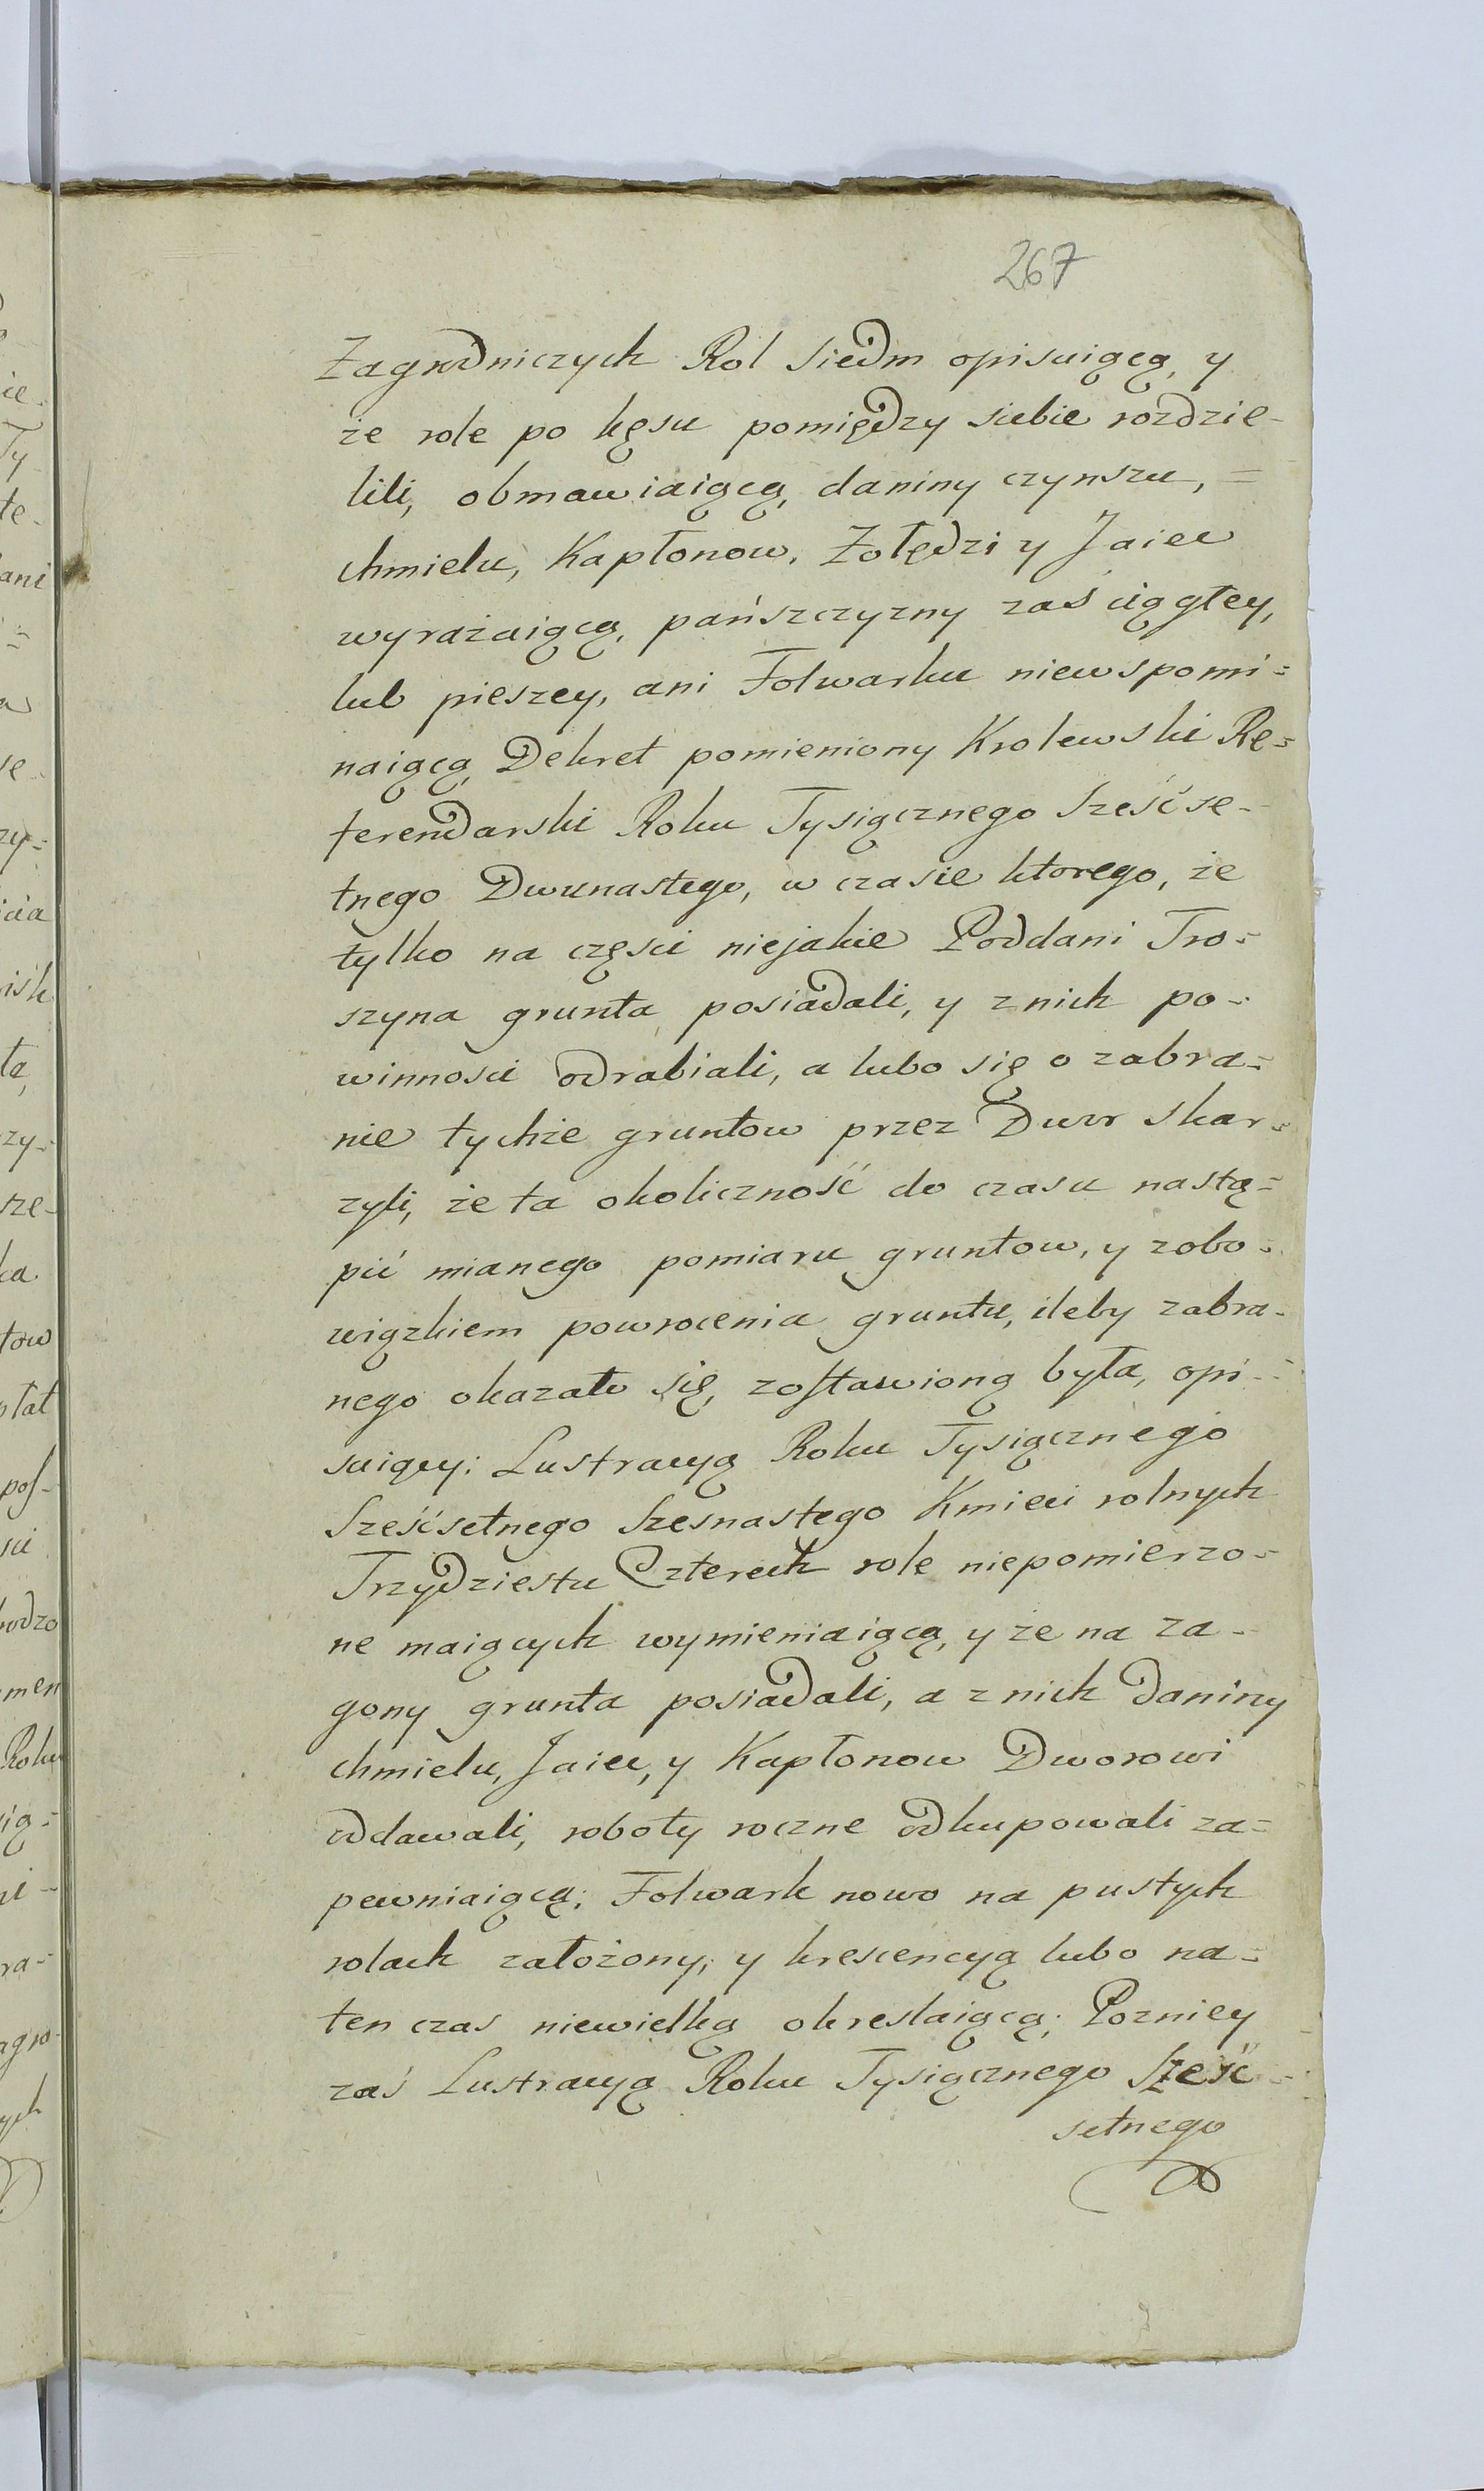 267
Zagrodniczych Rol siedm opisuiącą, y
że role po kęsu pomiędzy siebie rozdzie-
lili, obmawiaiącą, daniny czynszu, =
chmielu, Kapłonow, Zołędzi y Jaiec
wyrażaiącą, pańszczyzny zaś ciągłey,
lub pieszey, ani Folwarku niewspomi=
naiącą Dekret pomieniony Krolewski Re=
ferendarski Roku Tysiącznego Sześćse-
tnego Dwunastego, w czasie ktorego, że
tylko na części niejakie Poddani Tro=
szyna grunta posiadali, y z nich po-
winności odrabiali, a lubo się o zabra=
nie tychże gruntow przez Dwor skar=
zyli, że ta okoliczność do czasu nastą=
pić mianego pomiaru gruntow, y zobo=
wiązkiem powrocenia gruntu, ileby zabra-
nego okazało się, zostawioną była, opi=
suiący: Lustracyą Roku Tysiącznego
Sześćsetnego Szesnastego Kmieci rolnych
Trzydziestu Czterech role niepomierzo=
ne maiących wymieniaiącą, y że na za-
gony grunta posiadali, a z nich Daniny
chmielu, Jaiec, y Kapłonow Dworowi
oddawali, roboty roczne odkupowali za=
pewniaiącą; Folwark nowo na pustych
rolach założony, y krescencyą lubo na=
ten czas niewielką okreslaiącą; Pozniey
zaś Lustracyą Roku Tysiącznego Sześć=
setnego
ie
Ty
te-
ani
se-
zy=
icia
isk
ta,
zy-
sze-
ka.
tow
ptat
pos-
sci
hodzo
men
Roku
ią=
ra=
agro-
ych